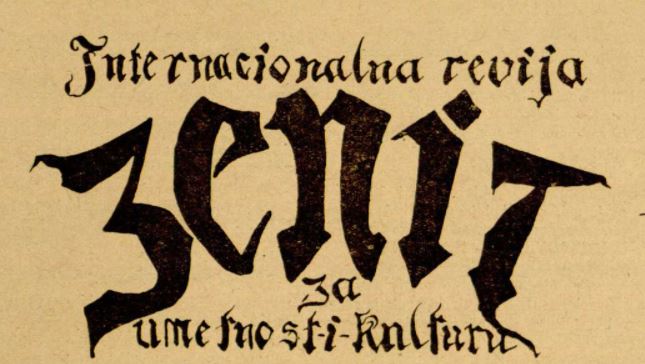 Internacionalna revija
Zenit
za
umetnost-i-kulturu